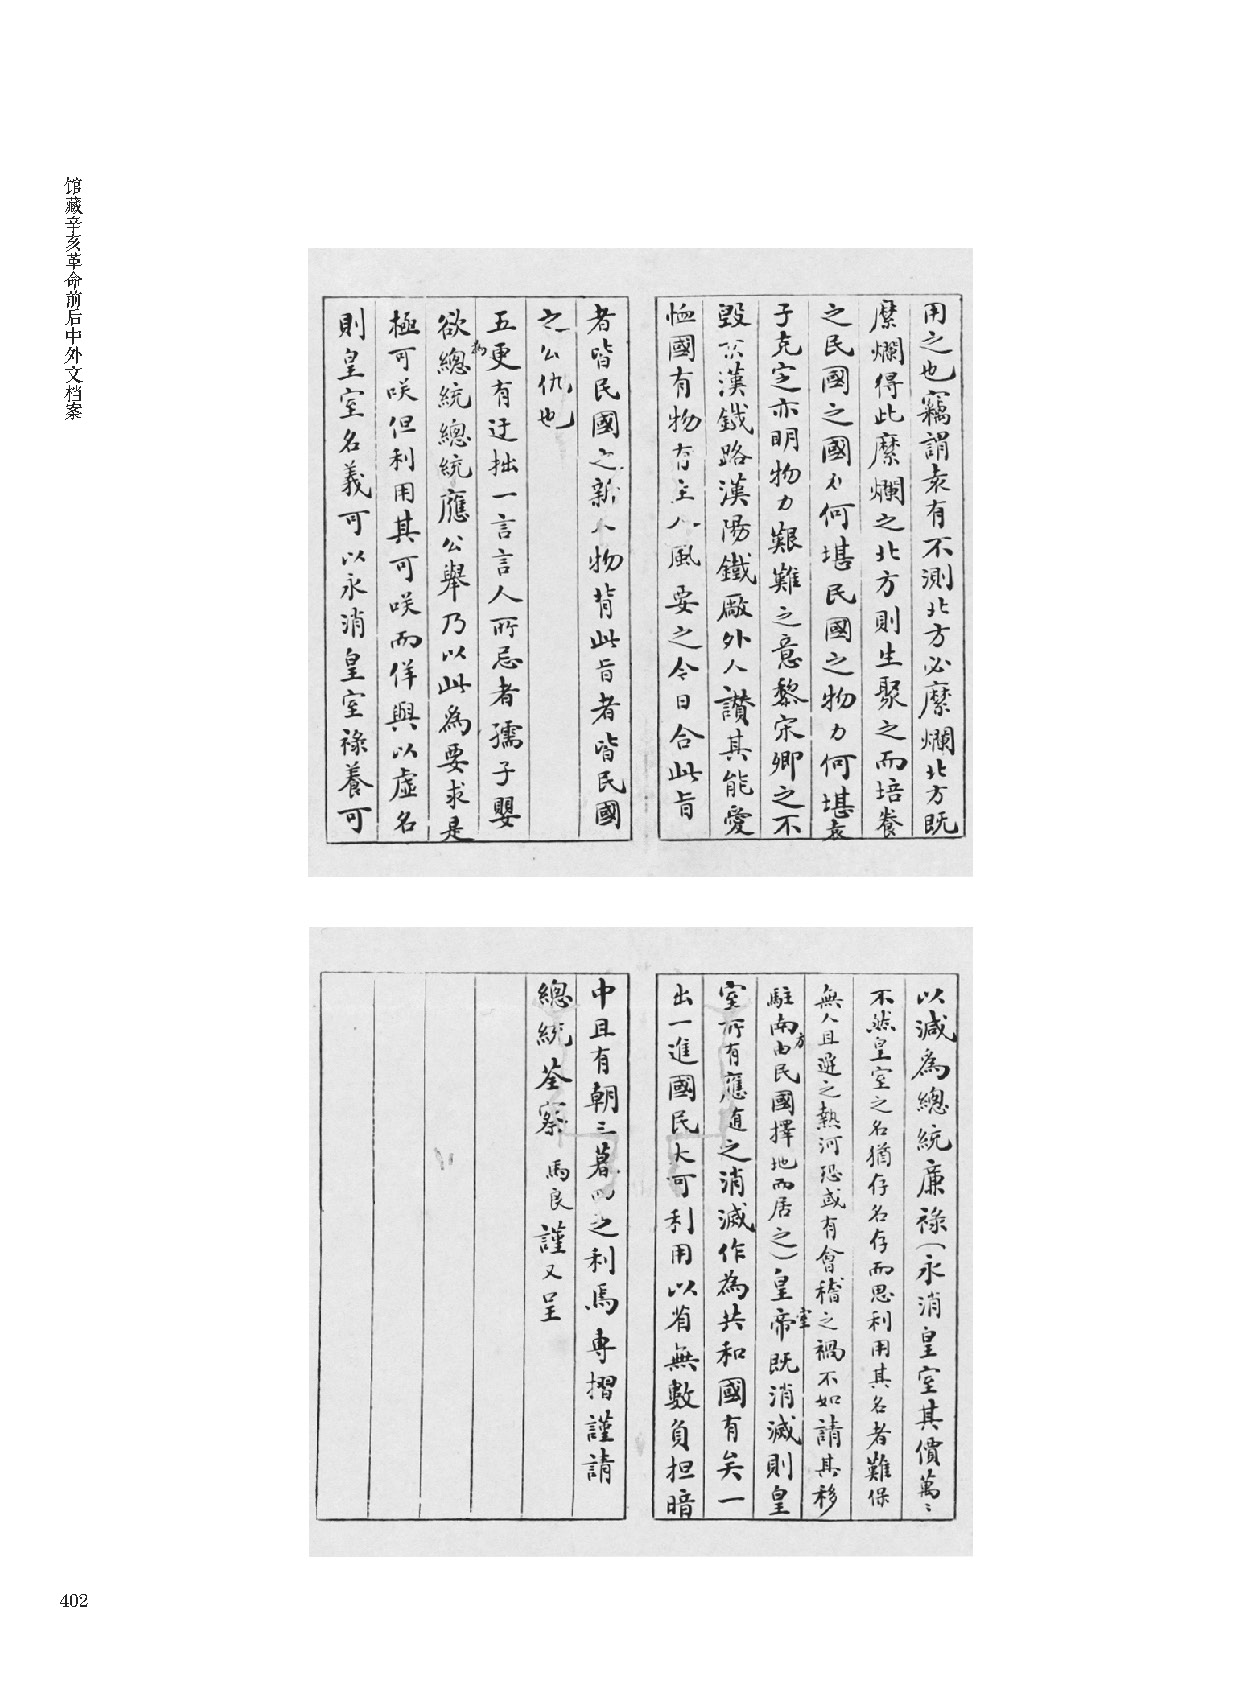 馆藏辛亥革命前后中外文档案
用之也竊謂袁有不測北方必糜爛北方既
糜爛得此糜爛之北方則生聚之而培養
之民國之國力何堪民國之物力何堪袁
子克定亦明物力艱難之意黎宋卿之不
毀京漢鐵路漢陽鐵廠外人讚其能愛
恤國有物有主人風要之今日合此旨
者皆民國之新人物背此旨者皆民國
之公仇也
五更有迂拙一言言人所忌者孺子嬰
欲為總統總統應公舉乃以此為要求是
極可咲但利用其可咲而佯與以虛名
則皇室名義可以永消皇室祿養可
以減為總統廉祿（永消皇室其價萬〻
不然皇室之名猶存名存而思利用其名者難保
無人且避之熱河恐或有會稽之禍不如請其移
駐南方由民國擇地而居之）皇帝室既消滅則皇
室所有應隨之消滅作為共和國有矣一
出一進國民大可利用以省無數負担暗
中且有朝三暮四之利馬專摺謹請
總統荃察 馬良謹又呈
402